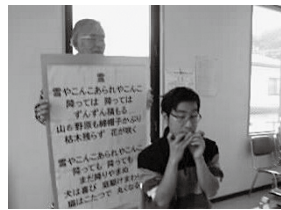 雪
雪やこんこあられやこんこ
降っては 降っては
ずんずん積もる
山も野原も綿帽子かぶり
枯木残らず 花が咲く
雪やこんこあられやこんこ
降っても 降っても
まだ降りやまぬ
犬は喜び 庭駆けまわり
猫はこたつで 丸くなる